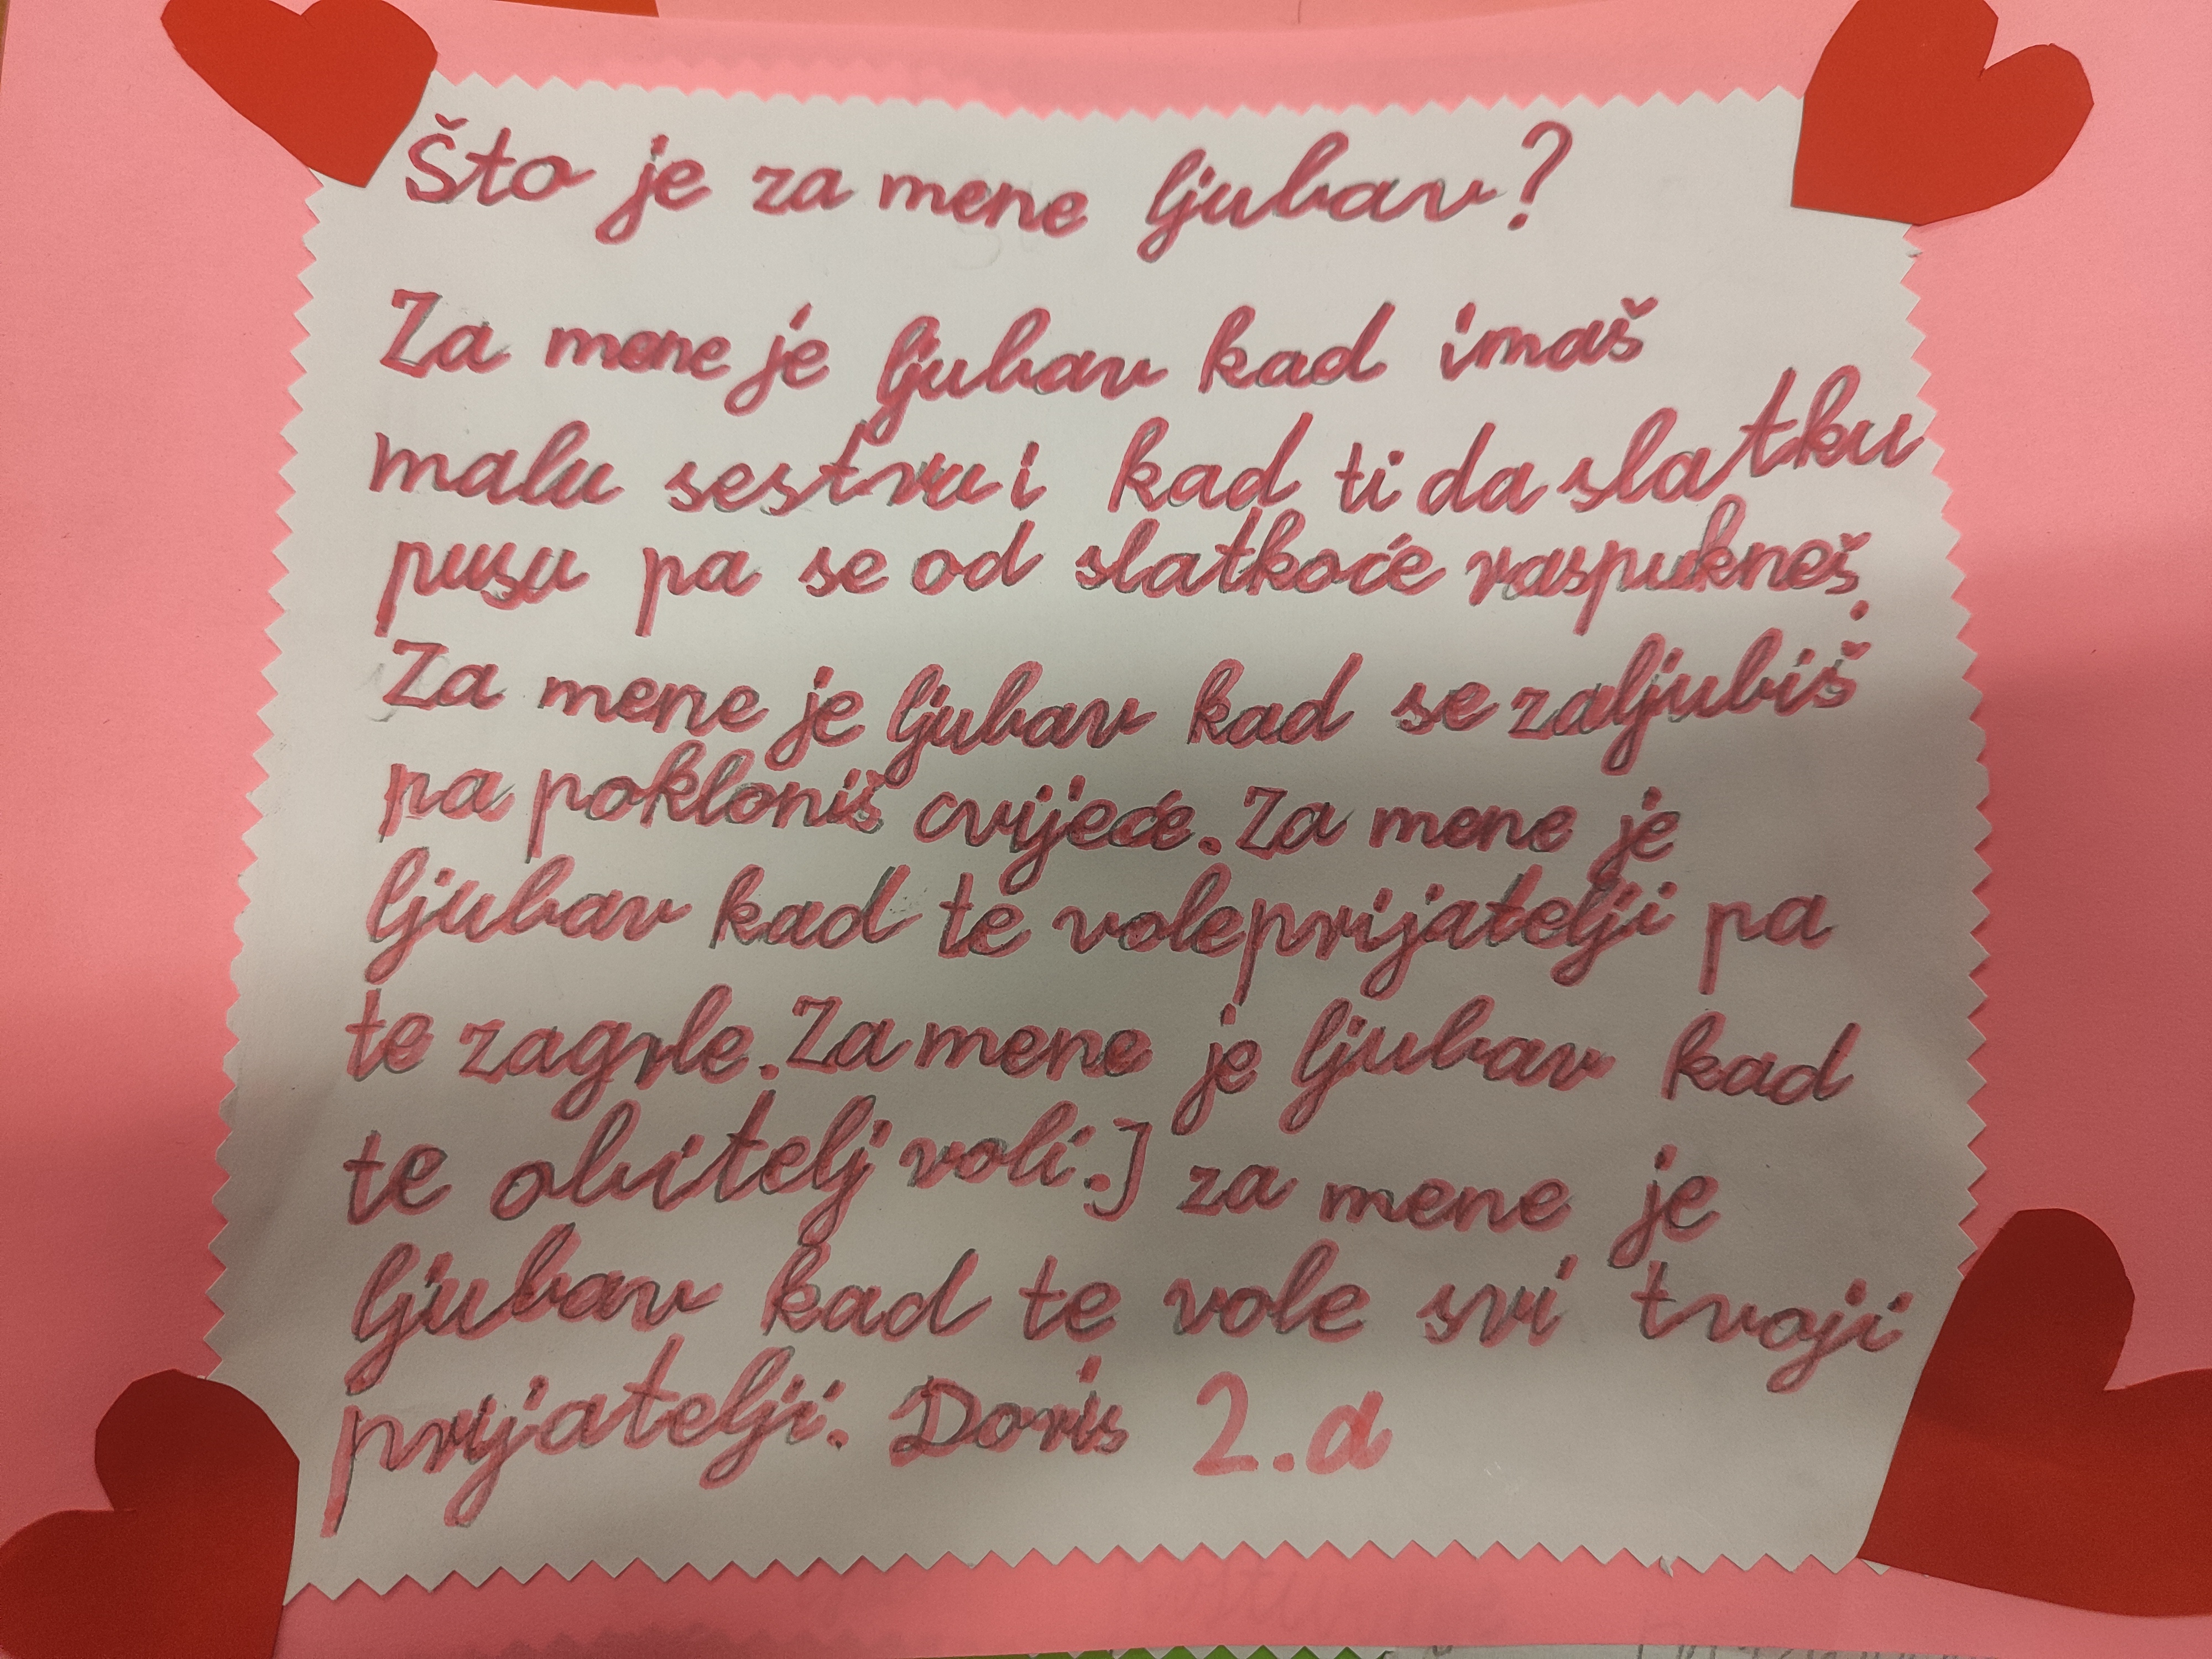 Što je za mene ljubav?
Za mene je ljubav kad imaš
malu sestru i kad ti da slatku
pusu pa se od slatkoće raspukneš.
Za mene je ljubav kad se zaljubiš
pa pokloniš cvijeće. Za mene je
ljubav kad te vole prijatelji pa
te zagrle. Za mene je ljubav kad
te obitelj voli.] za mene je
ljubav kad te vole svi tvoji
prijatelji. Doris 2.d